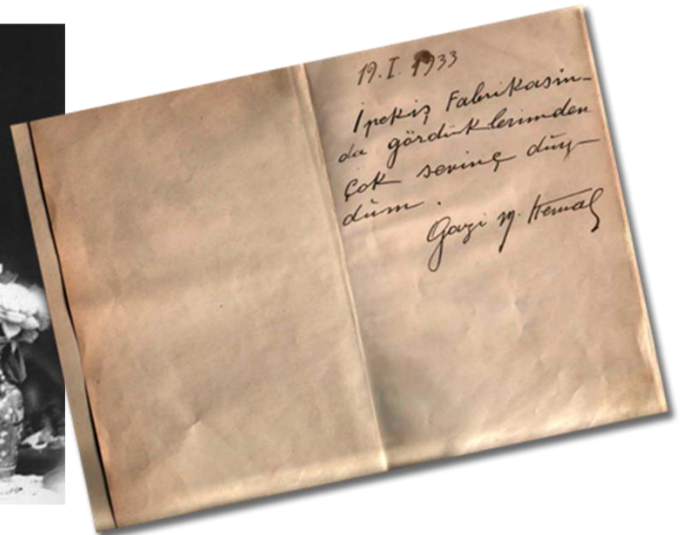 19.I.1933
İpekiş Fabrikasın-
da gördüklerimden
çok sevinç duy-
dum.
Gazi M. Kemal